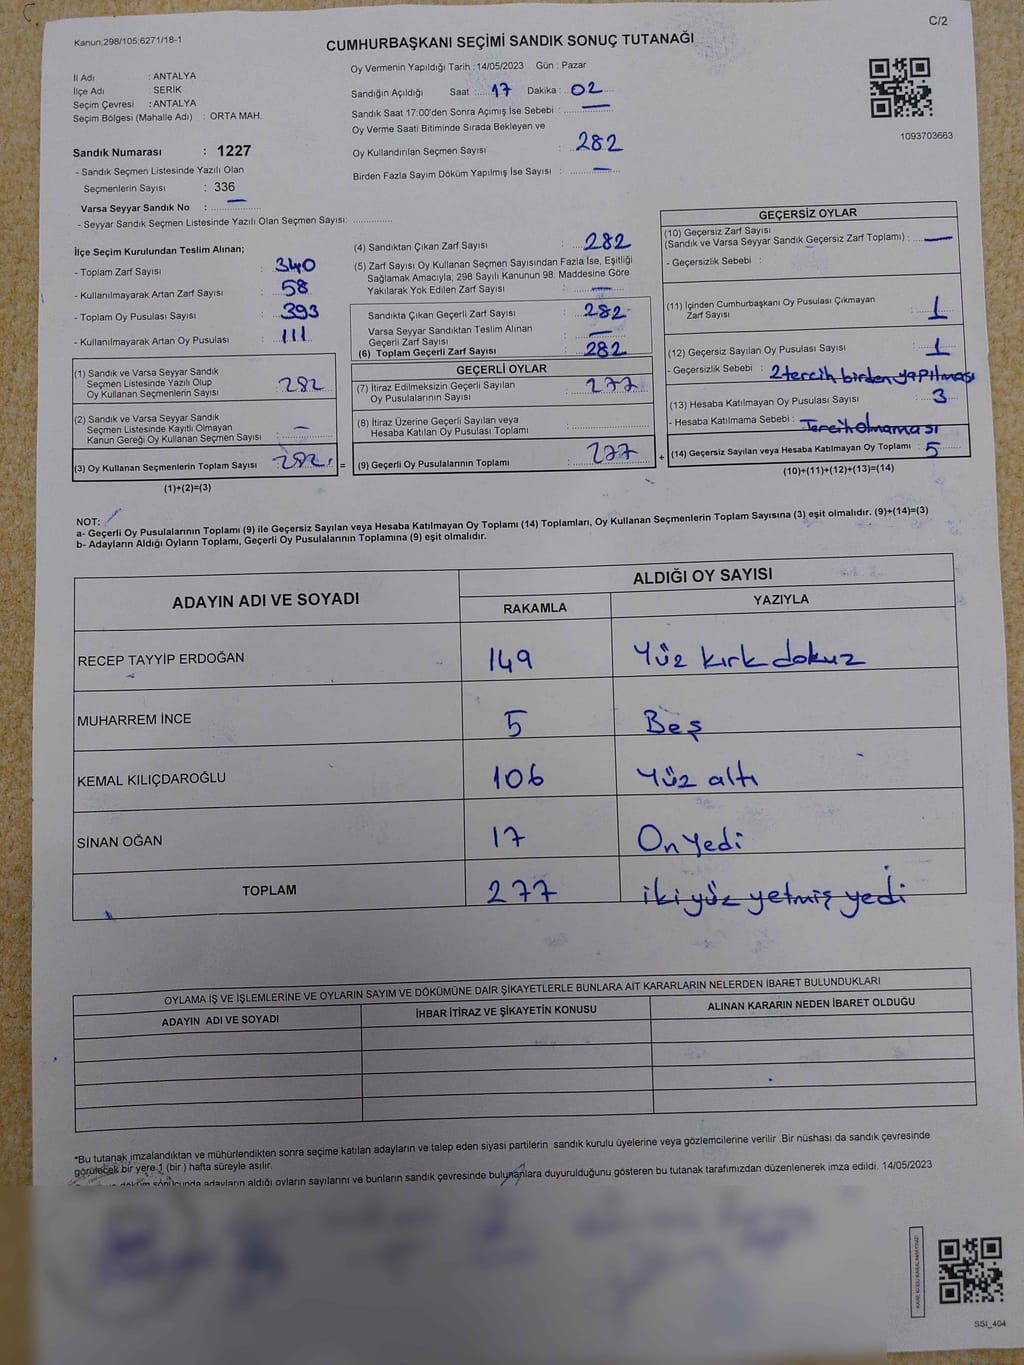 Kanun;298/105;6271/18-1
C/2
CUMHURBAŞKANI SEÇİMİ SANDIK SONUÇ TUTANAĞI
İl Adı : ANTALYA
İlçe Adı : SERİK
Seçim Çevresi : ANTALYA
Seçim Bölgesi (Mahalle Adı) : ORTA MAH.
Sandık Numarası : 1227
- Sandık Seçmen Listesinde Yazılı Olan
Seçmenlerin Sayısı : 336
Varsa Seyyar Sandık No : —
- Seyyar Sandık Seçmen Listesinde Yazılı Olan Seçmen Sayısı: ..............
Oy Vermenin Yapıldığı Tarih : 14/05/2023 Gün : Pazar
Sandığın Açıldığı Saat : 17 Dakika : 02
Sandık Saat 17:00'den Sonra Açımış İse Sebebi : —
Oy Verme Saati Bitiminde Sırada Bekleyen ve
Oy Kullandırılan Seçmen Sayısı : 282
Birden Fazla Sayım Döküm Yapılmış İse Sayısı : —
1093703663
İlçe Seçim Kurulundan Teslim Alınan;
- Toplam Zarf Sayısı : 340
- Kullanılmayarak Artan Zarf Sayısı : 58
- Toplam Oy Pusulası Sayısı : 393
- Kullanılmayarak Artan Oy Pusulası : 111
(1) Sandık ve Varsa Seyyar Sandık
Seçmen Listesinde Yazılı Olup
Oy Kullanan Seçmenlerin Sayısı : 282
(2) Sandık ve Varsa Seyyar Sandık
Seçmen Listesinde Kayıtlı Olmayan
Kanun Gereği Oy Kullanan Seçmen Sayısı : —
(3) Oy Kullanan Seçmenlerin Toplam Sayısı : 282
(1)+(2)=(3)
(4) Sandıktan Çıkan Zarf Sayısı : 282
(5) Zarf Sayısı Oy Kullanan Seçmen Sayısından Fazla İse, Eşitliği
Sağlamak Amacıyla, 298 Sayılı Kanunun 98. Maddesine Göre
Yakılarak Yok Edilen Zarf Sayısı : —
Sandıkta Çıkan Geçerli Zarf Sayısı : 282
Varsa Seyyar Sandıktan Teslim Alınan
Geçerli Zarf Sayısı : —
(6) Toplam Geçerli Zarf Sayısı : 282
GEÇERLİ OYLAR
(7) İtiraz Edilmeksizin Geçerli Sayılan
Oy Pusulalarının Sayısı : 277
(8) İtiraz Üzerine Geçerli Sayılan veya
Hesaba Katılan Oy Pusulası Toplamı :
= (9) Geçerli Oy Pusulalarının Toplamı : 277
GEÇERSİZ OYLAR
(10) Geçersiz Zarf Sayısı
(Sandık ve Varsa Seyyar Sandık Geçersiz Zarf Toplamı) : —
- Geçersizlik Sebebi :
(11) İçinden Cumhurbaşkanı Oy Pusulası Çıkmayan
Zarf Sayısı : 1
(12) Geçersiz Sayılan Oy Pusulası Sayısı : 1
- Geçersizlik Sebebi : 2 tercih birden yapılması
(13) Hesaba Katılmayan Oy Pusulası Sayısı : 3
- Hesaba Katılmama Sebebi : Tercih olmaması
+ (14) Geçersiz Sayılan veya Hesaba Katılmayan Oy Toplamı : 5
(10)+(11)+(12)+(13)=(14)
NOT:
a- Geçerli Oy Pusulalarının Toplamı (9) ile Geçersiz Sayılan veya Hesaba Katılmayan Oy Toplamı (14) Toplamları, Oy Kullanan Seçmenlerin Toplam Sayısına (3) eşit olmalıdır. (9)+(14)=(3)
b- Adayların Aldığı Oyların Toplamı, Geçerli Oy Pusulalarının Toplamına (9) eşit olmalıdır.
ADAYIN ADI VE SOYADI
ALDIĞI OY SAYISI
RAKAMLA YAZIYLA
RECEP TAYYİP ERDOĞAN 149 Yüz kırk dokuz
MUHARREM İNCE 5 Beş
KEMAL KILIÇDAROĞLU 106 Yüz altı
SİNAN OĞAN 17 On Yedi
TOPLAM 277 iki yüz yetmiş yedi
OYLAMA İŞ VE İŞLEMLERİNE VE OYLARIN SAYIM VE DÖKÜMÜNE DAİR ŞİKAYETLERLE BUNLARA AİT KARARLARIN NELERDEN İBARET BULUNDUKLARI
ADAYIN ADI VE SOYADI İHBAR İTİRAZ VE ŞİKAYETİN KONUSU ALINAN KARARIN NEDEN İBARET OLDUĞU
*Bu tutanak imzalandıktan ve mühürlendikten sonra seçime katılan adayların ve talep eden siyasi partilerin sandık kurulu üyelerine veya gözlemcilerine verilir .Bir nüshası da sandık çevresinde
görülecek bir yere 1 (bir) hafta süreyle asılır.
döküm sonucunda adayların aldığı oyların sayılarını ve bunların sandık çevresinde bulunanlara duyurulduğunu gösteren bu tutanak tarafımızdan düzenlenerek imza edildi. 14/05/2023
KARE KODU KARALAMAYINIZ!
SSİ_404